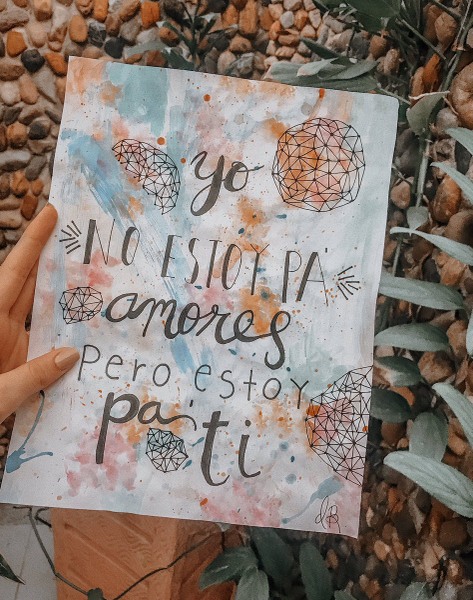 yo
NO ESTOY PA'
amores
pero estoy
pa' ti.